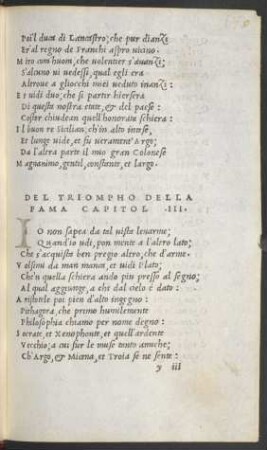 Poi'l duca di Lancastro; che pur dianzi
Er'al regno de Franchi aspro uicino.
Miro com'huom, che uolentier s'auanzi;
S'alcuno ui uedessi, qual egli era
Altroue a gliocchi miei ueduto inanzi:
Et uidi duo; che si partir hiersera
Di questa nostra etate, & del paese:
Costor chiudean quell'honorata schiera:
Il buon re Sicilian, ch'in alto intese,
Et lunge uide, et fu ueramente Argo;
Da l'altra parte il mio gran Colonese
Magnanimo, gentil, constante, et largo.
DEL TRIOMPHO DELLA
FAMA CAPITOL .III.
IO non sapea da tal uista leuarme;
Quand'io udi, pon mente a l'altro lato;
Che s'acquista ben pregio altro, che d'arme.
Volsimi da man manca, et uidi Plato;
Che'n quella schiera andò piu presso al segno;
Al qual aggiunge, a chi dal cielo è dato:
Aristotele poi pien d'alto ingegno:
Pithagora, che primo humilemente
Philosophia chiamo per nome degno:
Socrate, et Xenophonte, et quell'ardente
Vecchio; a cui fur le muse tanto amiche;
Ch'Argo, & Micena, et Troia se ne sente:
y iii